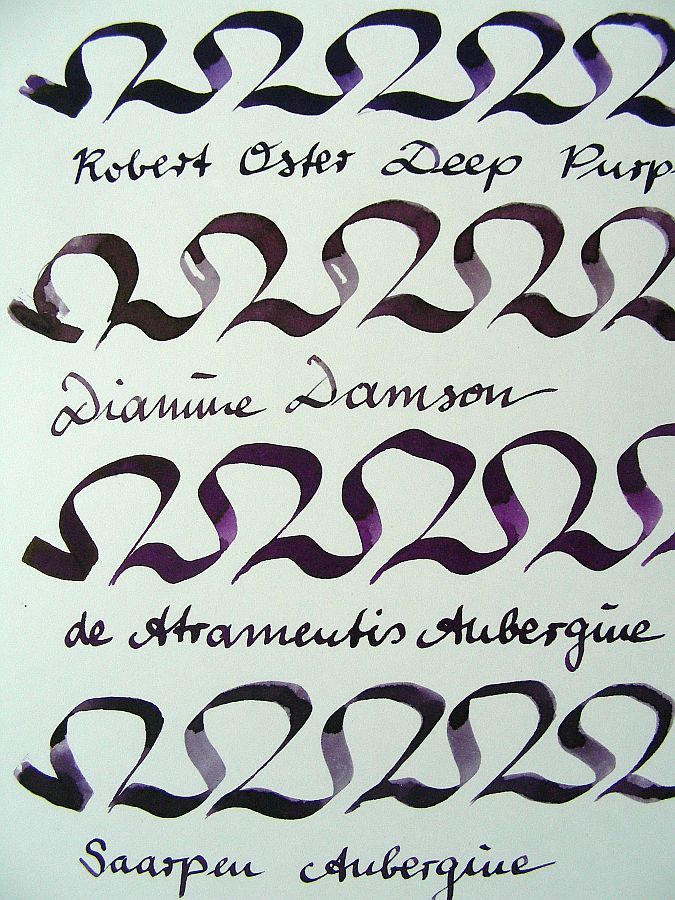 Robert Oster Deep Purp
Diamine Damson
de Atramentis Aubergine
Saarpen Aubergine